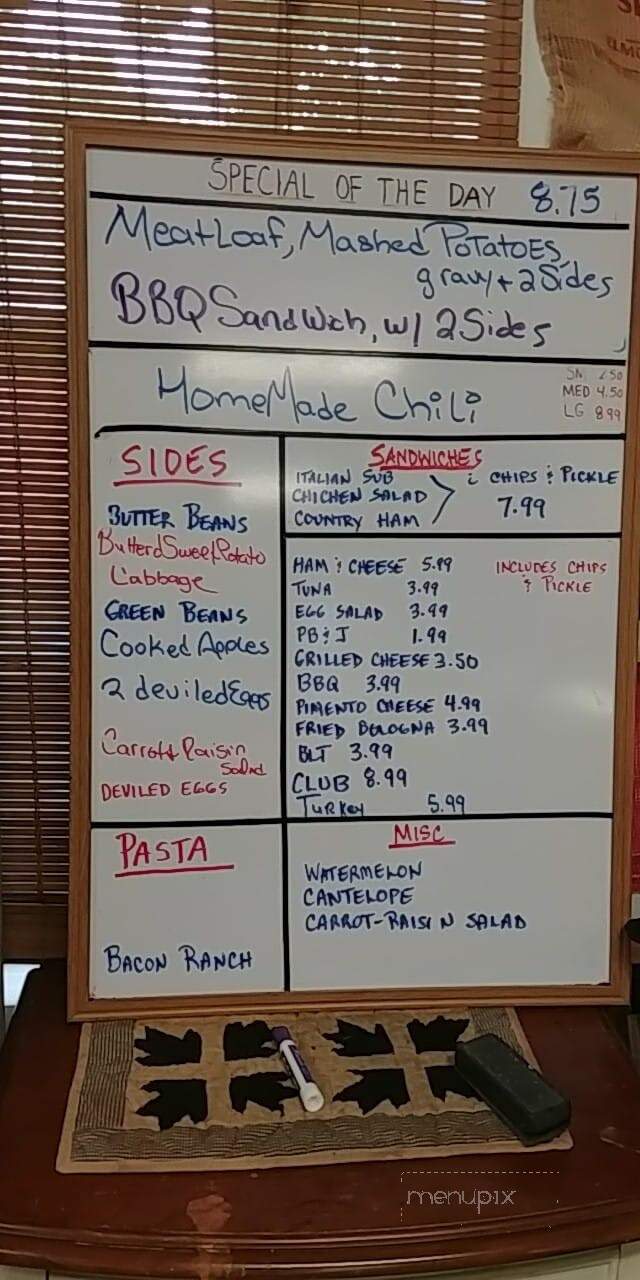 SPECIAL OF THE DAY 8.75
MeatLoaf, Mashed PoTaToES,
gravy + 2 Sides
BBQ Sandwich, w/ 2 Sides
HomeMade Chili
SM 2.50
MED 4.50
LG 8.99
SIDES
BUTTER BEANS
Butterd Sweet Potato
Cabbage
GREEN BEANS
Cooked Apples
2 deviled Eggs
Carrot & Raisin
Salad
DEVILED EGGS
SANDWICHES
ITALIAN SUB
CHICKEN SALAD
COUNTRY HAM
& CHIPS & PICKLE
7.99
HAM & CHEESE 5.99
TUNA 3.99
EGG SALAD 3.99
PB & J 1.99
GRILLED CHEESE 3.50
BBQ 3.99
PIMENTO CHEESE 4.99
FRIED BOLOGNA 3.99
BLT 3.99
CLUB 8.99
Turkey 5.99
INCLUDES CHIPS
& PICKLE
PASTA
BACON RANCH
MISC
WATERMELON
CANTELOPE
CARROT-RAISIN SALAD
menupix